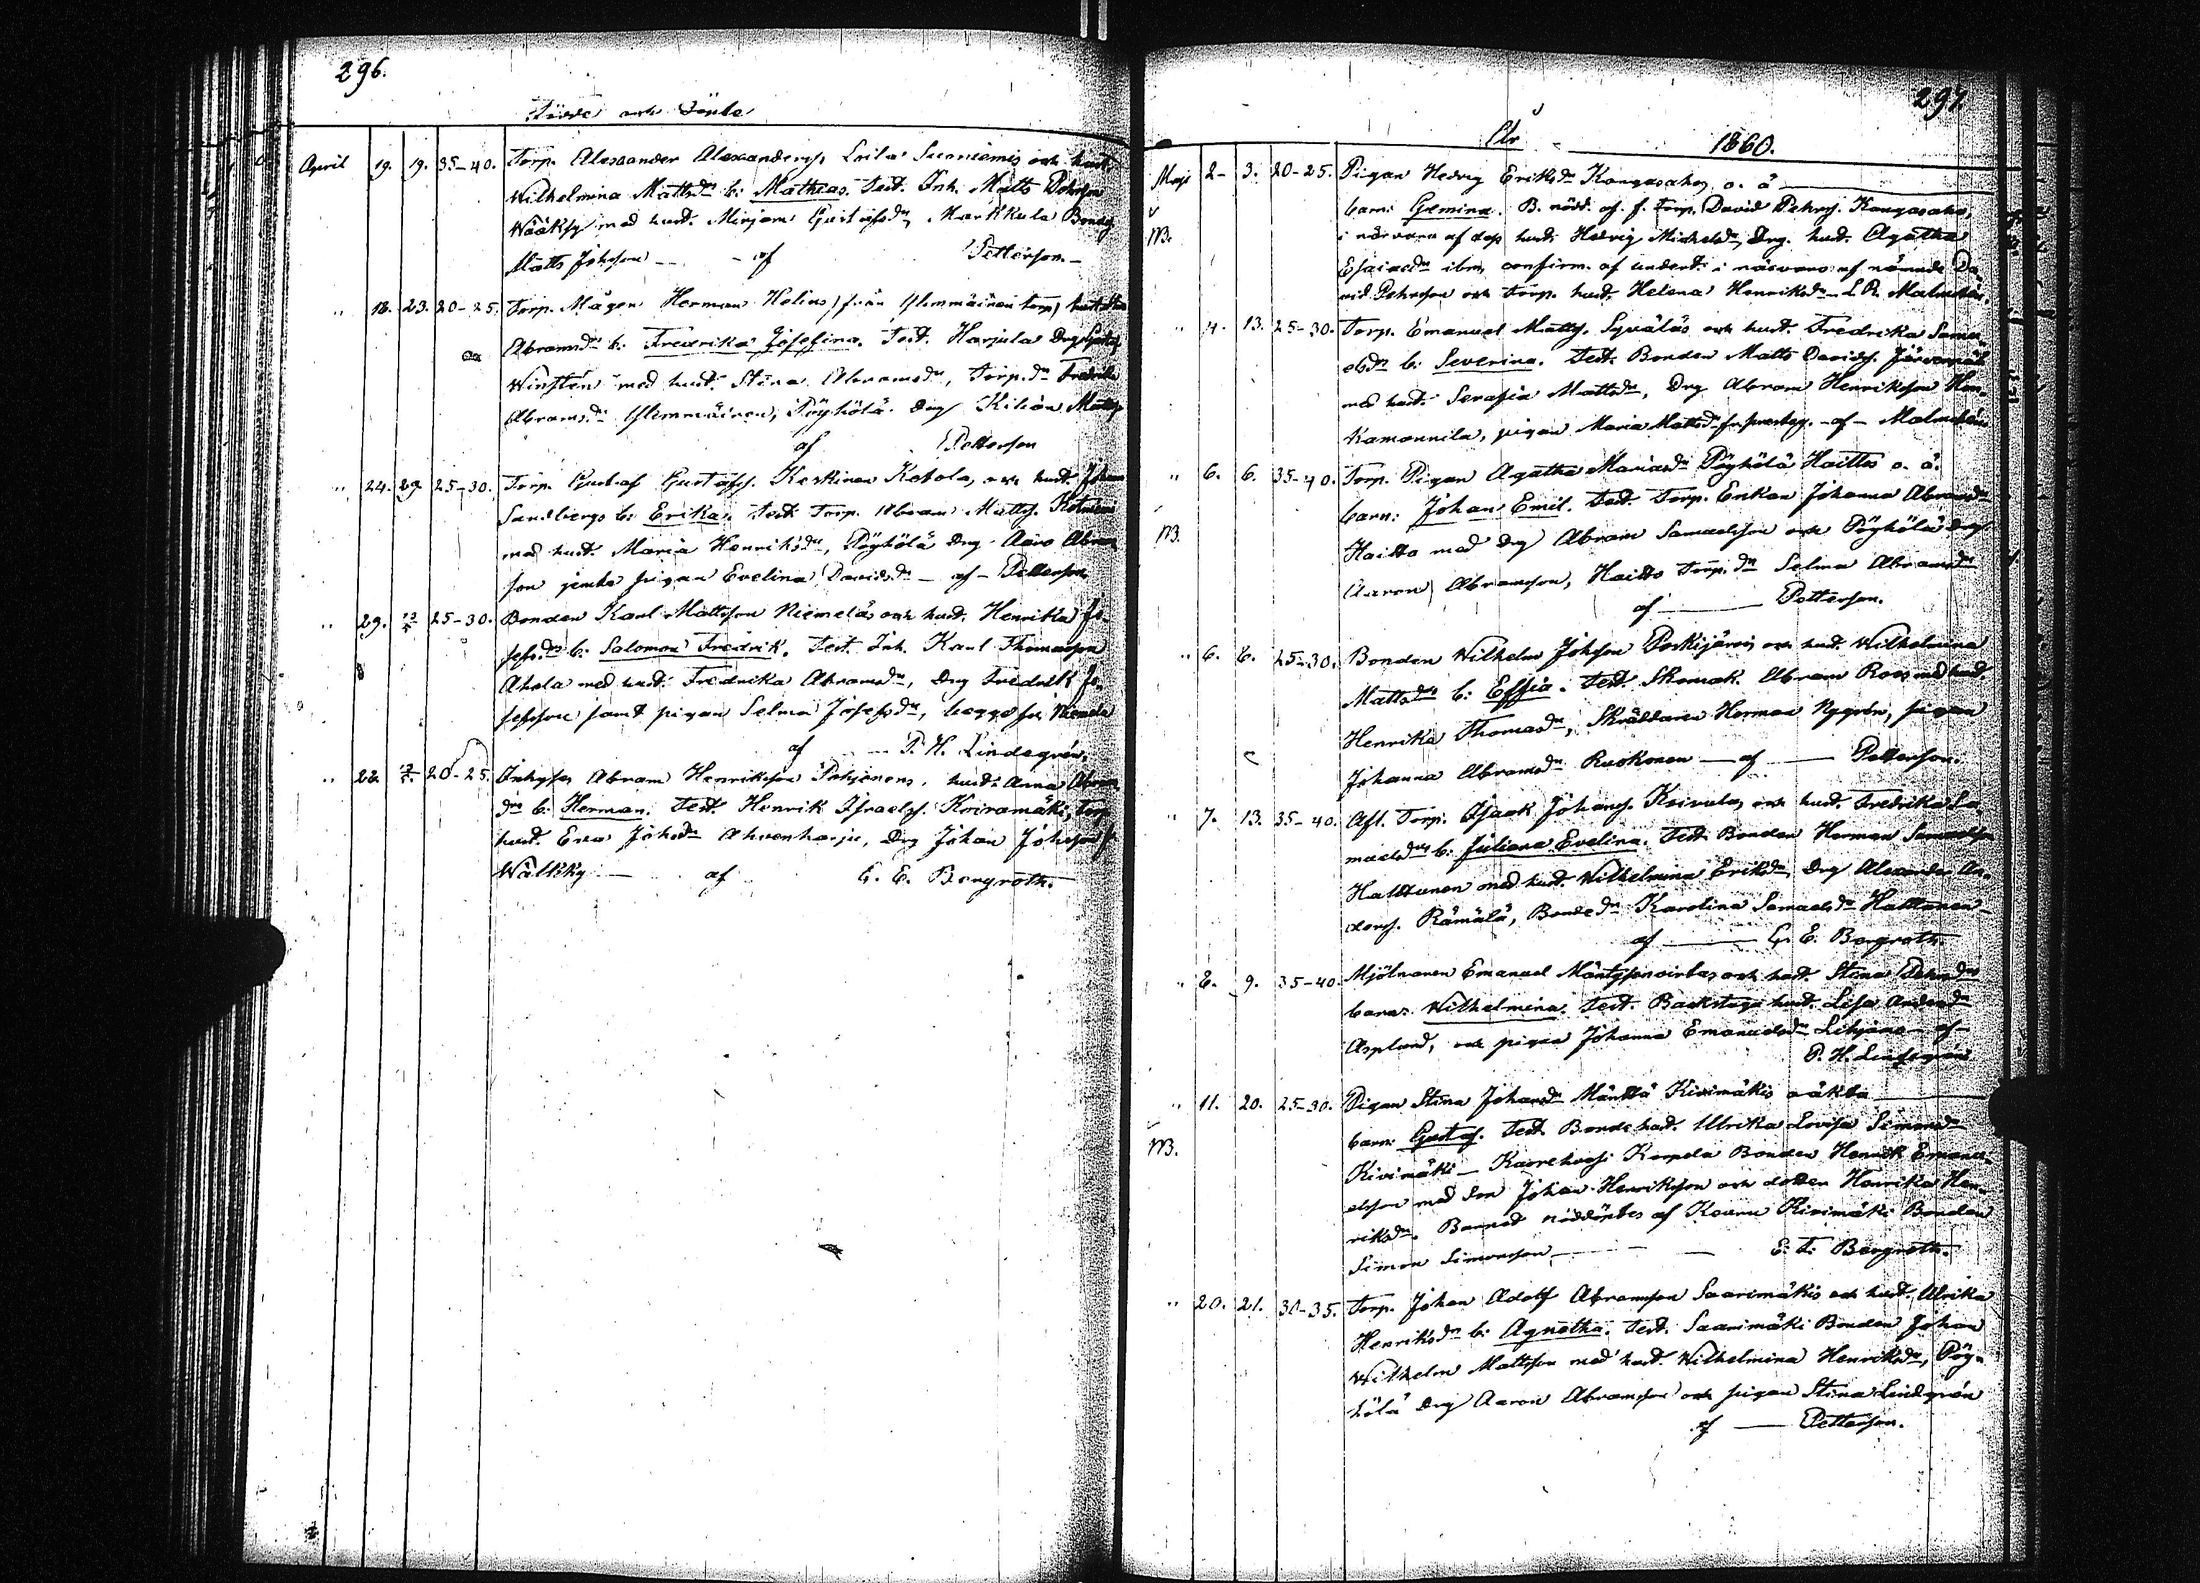 296.
Födde och Döpte
April 19. 19. 35-40. Torp. Alexander Alexanders. Leila Suoniemis och hust.
Wilhelmina Mattsdr b: Mathias. Test. Inh. Matts Pehrson
Wääksy med hust. Mirjam Gustafsdr, Markkula Bondes.
Matts Johnson - af Petterson -
" 18. 23. 20-25. Torp. Mågen Herman Helins, från Ylemmäinen torp, hust.
Abramsdr b: Fredrika Josefina. Test. Harjula Drg Gustaf
Winstén med hust. Stina Abramsdr, Torp. dr Fredrika
Abramsdr Ylemmäinen, Pöyhölä Drg Kilian Matts.
af Petterson
" 24. 29. 25-30. Torp. Gustaf Gustafss. Keskinen Kotola, och hust. Johan
Sandbergs b: Erika. Test. Torp. Abram Matts.
med hust. Maria Henriksdr, Pöyhölä Drg Aaro Abram
son jemte pigan Evelina Davidsdr - af - Petterson.
" 29. 25-30. Bonden Karl Mattson Niemeläs och hust. Henrika Jo-
sefsdrs b: Salomon Fredrik. Test. Inh. Karl Thomasson
Ahola med hust. Fredrika Abramsdr, Drg Fredrik Jo-
sefsson samt pigan Selma Josefsdr, begge fr. Niemelä
af - P. H. Lindegrén.
" 22. 20-25. Inhyses Abram Henrikson Pohjanens, hust. Anna Abram
drs b: Herman. Test. Henrik Israels. Koiramäki, Torp.
hust. Eva Johsdr Ahvenharju, Drg Johan Johnson fr
Wälkky - af G. E. Bergroth.
297.
År 1860.
Maji 2- 3. 20-25. Pigan Hedvig Eriksdr Kangasahos o. ä
NB.
barn: Gemina. B. nödd. af f. Torp. David Pehrs. Kangasaho,
i närvaro af dess hust. Hedvig Michelsdr, Drg. hust. Agatha
Esaiaedr ibm, confirm. af undert. i närvaro af nämnde Da-
vid Pehrson och Torp. hust. Helena Henriksdr - L. R. Malmstén.
" 4. 13. 25-30. Torp. Emanuel Matts. Syväläs och hust. Fredrika Samu-
elsdr b: Severina. Test. Bonden Matts Davids. Järvenpää
med hust. Serafia Mattsdr, Drg Abram Henrikson Hon-
kamannila, pigan Maria Mattsdr fr. prestg. - af - Malmstén
" 6. 6. 35-40. Torp. Pigan Agatha Mariasdr Pöyhölä Haittos o. ä.
NB.
barn: Johan Emil. Test. Torp. Enkan Johanna Abramsdr
Haitto med Drg Abram Samuelsson och Pöyhölä Drg
Aaron Abramson, Haitto Torp. dr Selma Abramsdr
af - Petterson.
" 6. 6. 25-30. Bonden Wilhelm Johson Poikijärvi och hust. Wilhelmina
Mattsdrs b: Effia. Test. Skomak. Abram Roos med hust.
Henrika Thomasdr, Skräddaren Herman Nygrén, pigan
Johanna Abramsdr Ruokonen - af - Petterson.
" 7. 13. 35-40. Afl. Torp. Isaak Johans. Koivulas och hust. Fredrika Sa-
muelsdrs b: Juliana Evelina. Test. Bonden Herman Samuelson
Hattunen med hust. Wilhelmina Eriksdr, Drg Alexander An-
ders. Rämälä, Bonde dr Karolina Samuelsdr Hattunen -
af - G. E. Bergroth.
" 8. 9. 35-40. Mjölnaren Emanuel och hust. Stina Pehrsdrs
barn: Wilhelmina. Test. Backstuga hust. Lisa Andersdr
Asplund, och pigan Johanna Emanuelsdr - af -
P. H. Lindegrén
" 11. 20. 25-30. Pigan Stina Johansdr Mänttä Kivimäkis oäkta
NB.
barn: Gustaf. Test. Bonde hust. Ulrika Lovisa Simonsdr
Kivimäki - Korpela Bonden Henrik Emanu-
elsson med son Johan Henrikson och dotter Henrika Hen-
riksdr. Barnet nöddöptes af Kivimäki Bonden
Simon Simonson - E. F. Bergroth.
" 20. 21. 30-35. Torp. Johan Adolf Abramson Saarimäkis och hust. Ulrika
Henriksdr b: Agnetha. Test. Saarimäki Bonden Johan
Wilhelm Mattson med hust. Wilhelmina Henriksdr, Pöy-
hölä Drg Aaron Abramson och pigan Stina Lindgrén
af - Petterson.